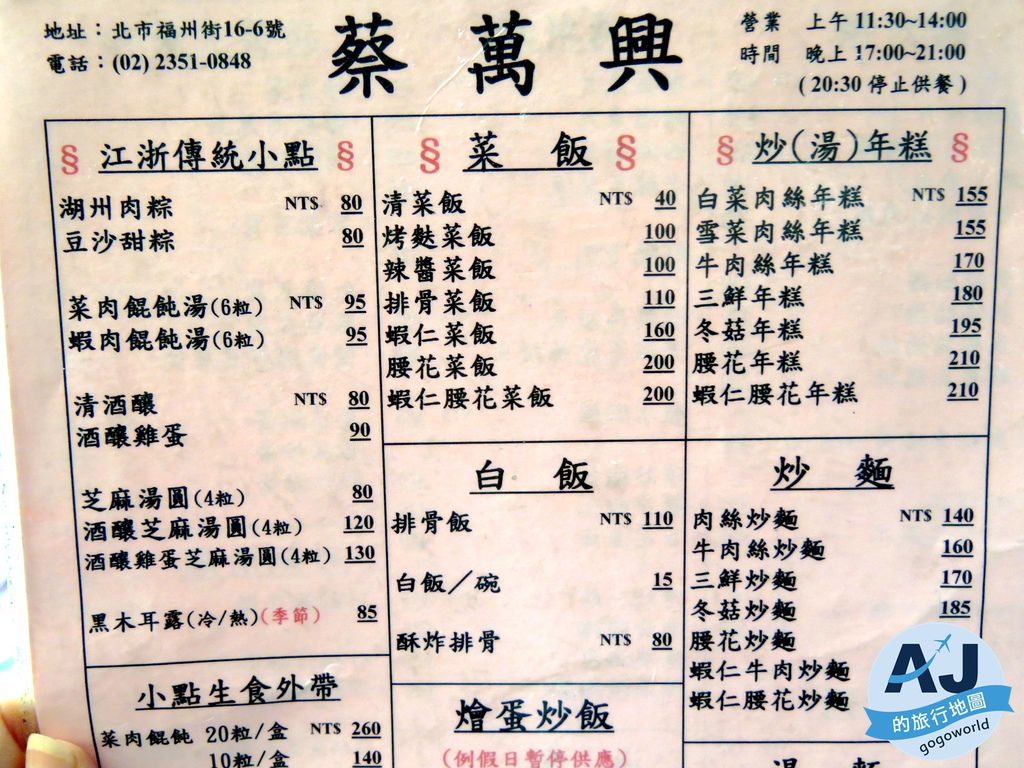 地址：北市福州街16-6號
電話：(02) 2351-0848
蔡萬興
營業 上午 11:30~14:00
時間 晚上 17:00~21:00
( 20:30 停止供餐 )
§ 江浙傳統小點 §
湖州肉粽 NT$ 80
豆沙甜粽 80
菜肉餛飩湯(6粒) NT$ 95
蝦肉餛飩湯(6粒) 95
清酒釀 NT$ 80
酒釀雞蛋 90
芝麻湯圓(4粒) 80
酒釀芝麻湯圓(4粒) 120
酒釀雞蛋芝麻湯圓(4粒) 130
黑木耳露(冷/熱)(季節) 85
小點生食外帶
菜肉餛飩 20粒/盒 NT$ 260
10粒/盒 140
§ 菜 飯 §
清菜飯 NT$ 40
烤麩菜飯 100
辣醬菜飯 100
排骨菜飯 110
蝦仁菜飯 160
腰花菜飯 200
蝦仁腰花菜飯 200
白 飯
排骨飯 NT$ 110
白飯／碗 15
酥炸排骨 NT$ 80
燴蛋炒飯
(例假日暫停供應)
§ 炒(湯)年糕 §
白菜肉絲年糕 NT$ 155
雪菜肉絲年糕 155
牛肉絲年糕 170
三鮮年糕 180
冬菇年糕 195
腰花年糕 210
蝦仁腰花年糕 210
炒 麵
肉絲炒麵 NT$ 140
牛肉絲炒麵 160
三鮮炒麵 170
冬菇炒麵 185
腰花炒麵
蝦仁牛肉炒麵
蝦仁腰花炒麵
AJ
的旅行地圖
gogoworld